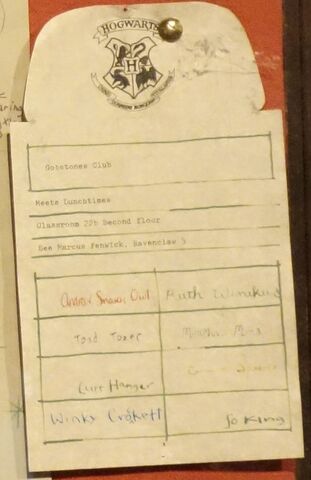 HOGWARTS
Gobstones Club
Meets Lunchtimes
Classroom 22b Second floor
See Marcus Fenwick, Ravenclaw 3
Andrew Snowy Owl Ruth Winakur
Toad Tozer
Curt Hanger
Winky Crokett Jo King